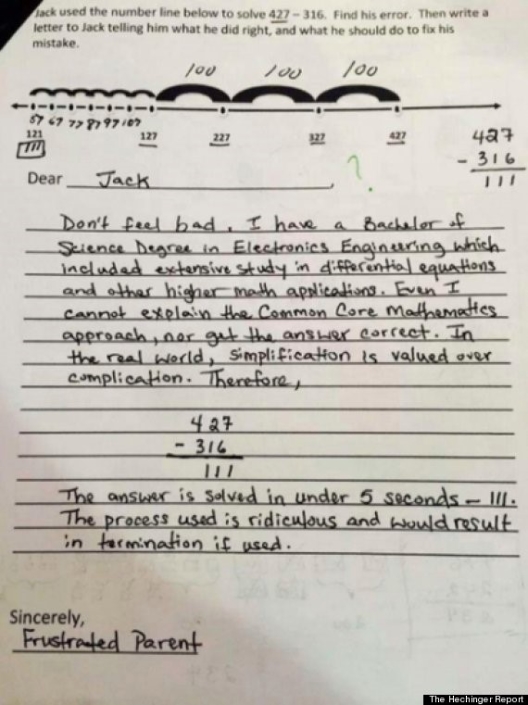 Jack used the number line below to solve 427 – 316. Find his error. Then write a
letter to Jack telling him what he did right, and what he should do to fix his
mistake.
100 100 100
57 67 77 87 97 107
121 127 227 327 427
111
427
- 316
111
Dear Jack, ?
Don't feel bad. I have a Bachelor of
Science Degree in Electronics Engineering which
included extensive study in differential equations
and other higher math applications. Even I
cannot explain the Common Core Mathematics
approach, nor get the answer correct. In
the real world, simplification is valued over
complication. Therefore,
427
- 316
111
The answer is solved in under 5 seconds – 111.
The process used is ridiculous and would result
in termination if used.
Sincerely,
Frustrated Parent
The Hechinger Report